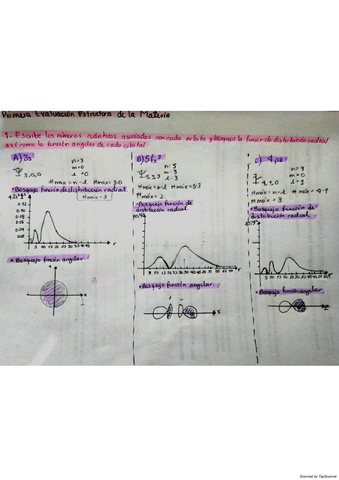 Primera Evaluación Estructura de la Materia
1.- Escribe los números cuánticos asociados con cada orbital y bosqueja la función de distribución radial
así como la función angular de cada orbital.
A) 3s
n=3
m=0
l=0
Ψ 3,0,0
# max = n-l # max = 3-0
# max = 3
• Bosquejo función de distribución radial
• Bosquejo función angular
B) 5fx³
n=5
m=3
l=3
# max = n-l # max = 5-3
# max = 2
• Bosquejo función de
distribución radial
• Bosquejo función angular
x
C) 4pz
n=4
m=0
l=1
Ψ 4,1,0
# max = n-l # max = 4-1
# max = 3
• Bosquejo función de
distribución radial
• Bosquejo función angular
z
Scanned by TapScanner